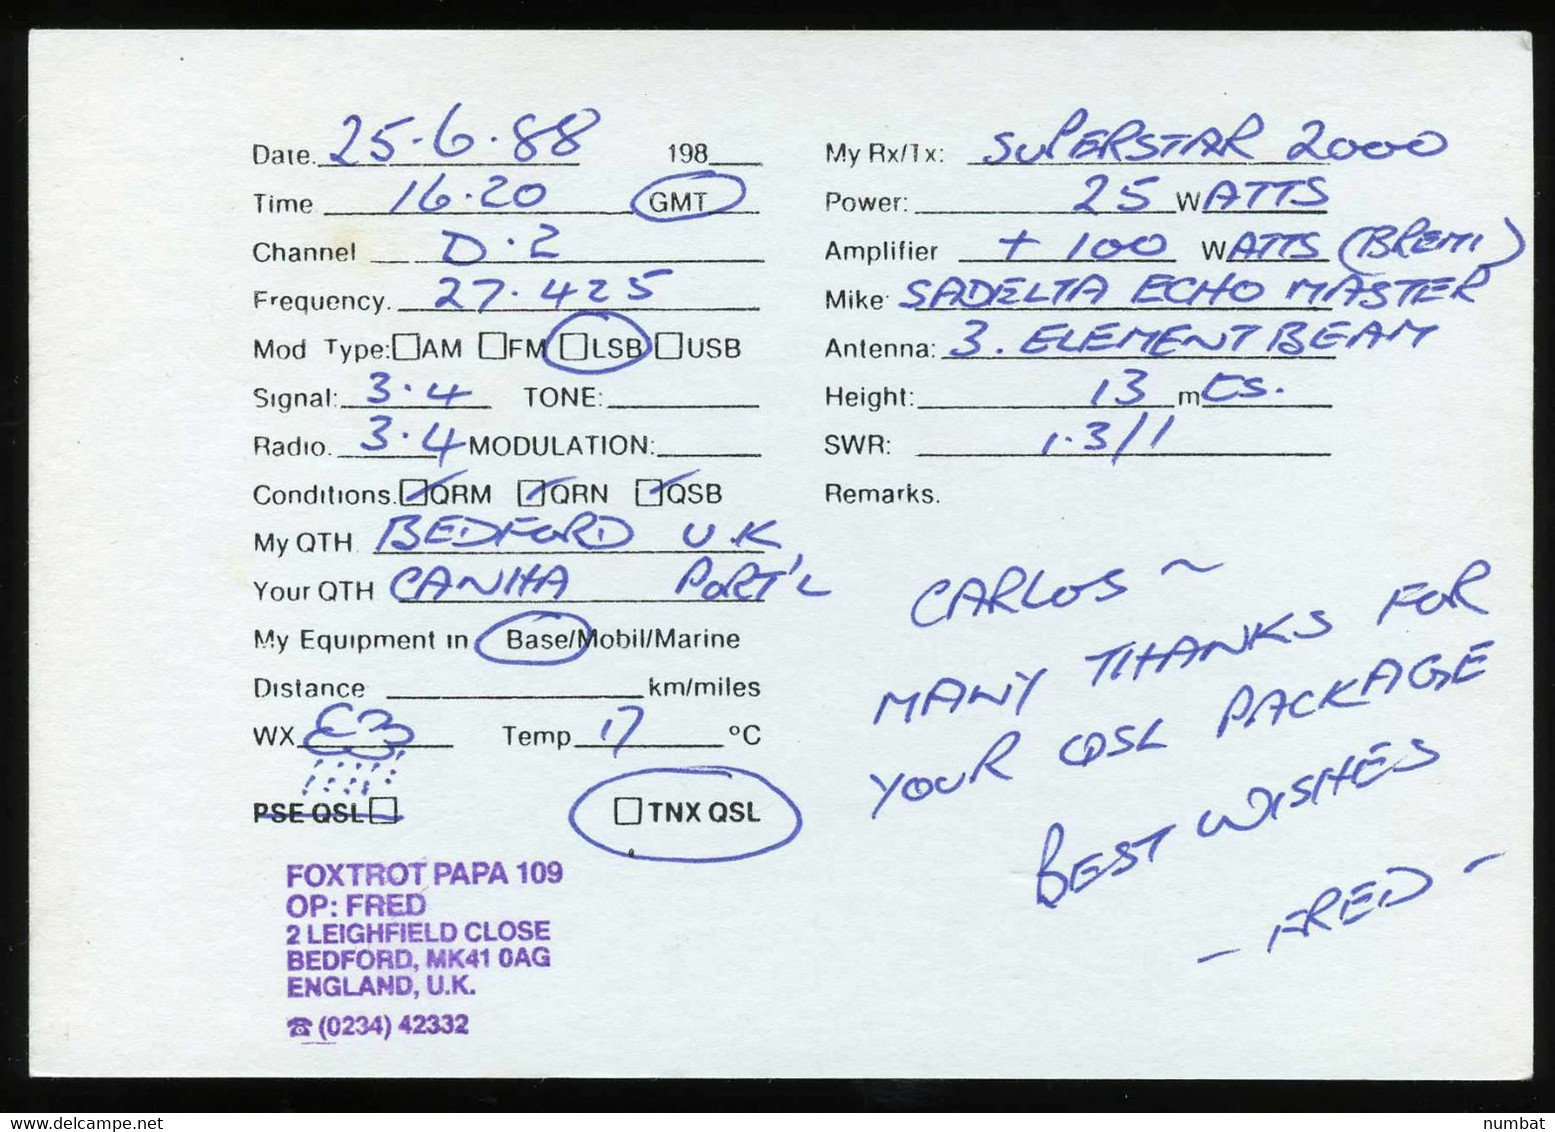 Date. 25.6.88 198
Time 16.20 GMT
Channel D.2
Frequency. 27.425
Mod Type: AM FM LSB USB
Signal: 3.4 TONE:
Radio. 3.4 MODULATION:
Conditions. QRM QRN QSB
My QTH BEDFORD U.K
Your QTH CANHA PORT'L
My Equipment in Base/Mobil/Marine
Distance km/miles
WX Temp 17 °C
PSE QSL TNX QSL
FOXTROT PAPA 109
OP: FRED
2 LEIGHFIELD CLOSE
BEDFORD, MK41 0AG
ENGLAND, U.K.
☎ (0234) 42332
My Rx/Tx: SUPERSTAR 2000
Power: 25 WATTS
Amplifier + 100 WATTS (BREMI)
Mike SADELTA ECHO MASTER
Antenna: 3. ELEMENT BEAM
Height: 13 mts.
SWR: 1.3/1
Remarks.
CARLOS ~
MANY THANKS FOR
YOUR QSL PACKAGE
BEST WISHES
- FRED -
www.delcampe.net
numbat